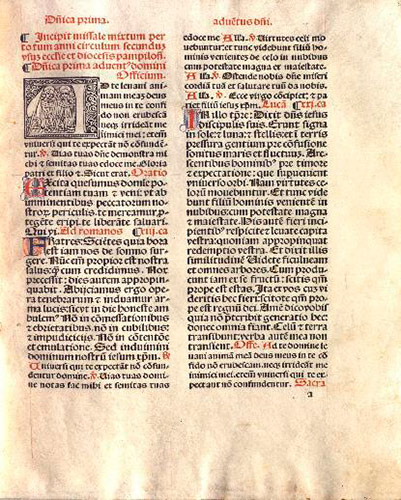 Dñica prima.
Incipit missale mixtum per
totum anni circulum secundum
usum ecclesie et diocesis pampilon̄.
Dñica prima aduentꝰ domini
Officium.
D te leuaui ani
mam meã: deus
meus in te confi
do non erubescã
neqꝫ irrideãt me
inimici mei: etem̃
vniuersi qui te expectãt nõ cõfun
dentur. ꝟ. Vias tuas dñe demonstra mi
hi ⁊ semitas tuas edoce me. Gloria
patri et filio. Sicut erat. Oratio
Excita quesumus domĩe po
tentiam tuam ⁊ veni: vt ab
imminentibus peccatorum no
strorũ periculis te mereamur p̱
tegẽte eripi: te liberãte saluari.
Qui vi. Ad romanos xiij. ca
Fratres: Sciẽtes quia hora
est iam nos de somno sur
gere. Nũc em̃ propior est nostra
salusqꝫ cum credidimus. Nox
precessit: dies autem appropin
quabit. Abijciamus ergo opera
tenebrarum ⁊ induamur arma
lucis: sicut in die honeste am
bulem⁹. Nõ in comessationibus
⁊ ebrietatibus: nõ in cubilibus
⁊ impudicitijs: nõ in cõtentõe
et emulatione. Sed induimini
dominum nostrũ iesum xp̃m.
Vniuersi qui te expectãt nõ confun
dentur domine. ꝟ. Vias tuas domi
ne notas fac mihi et semitas tuas
aduẽtus dñi.
edoce me Alla. ꝟ. Virtutes celi mo
uebuntur: et tunc videbunt filiũ homi
nis venientem de celo in nubibus
cum potestate magna et maiestate.
Alla. ꝟ. Ostende nobis dñe miseri
cordiã tuã: et salutare tuũ da nobis.
Alla. ꝟ. Ecce virgo cõcipiet: ⁊ pa
riet filiũ iesus xp̃m. Luce xxj. ca
In illo tp̃re: Dixit dñs iesus
discipulis suis. Erunt signa
in sole: ⁊ luna: ⁊ stellis: ⁊ ĩ terris
pressura gentium pre cõfusione
sonitus maris et fluctuũ. Are
scentibus hominibꝰ pre timore
et expectatione: que superuenient
vniuerso orbi. Nam virtutes ce
lorũ mouebuntur. Et tunc vide
bunt filium hominis venientẽ in
nubibus: cum potestate magna
⁊ maiestate. His autẽ fieri inci
pientibꝰ respicite: ⁊ leuate capita
vestra: quoniam appropinquat
redemptio vestra. Et dixit illis
similitudinẽ. Videte ficulneam
et omnes arbores. Cum produ
cunt iam ex se fructũ: scitis qm̃
prope est estas. Ita et vos cũ vi
deritis hec fieri: scitote qm̃ pro
pe est regnũ dei. Amẽ dico vobis:
quia nõ preteribit generatio hec
donec omnia fiant. Celũ ⁊ terra
transibunt: verba autẽ mea non
transient. Offe. Ad te domine le
uaui animã meã deus meus in te cõ
fido nõ erubescam. neqꝫ irrideãt me
inimici mei: etem̃ vniuersi qui te ex
pectant nõ confundentur. Sacra
a